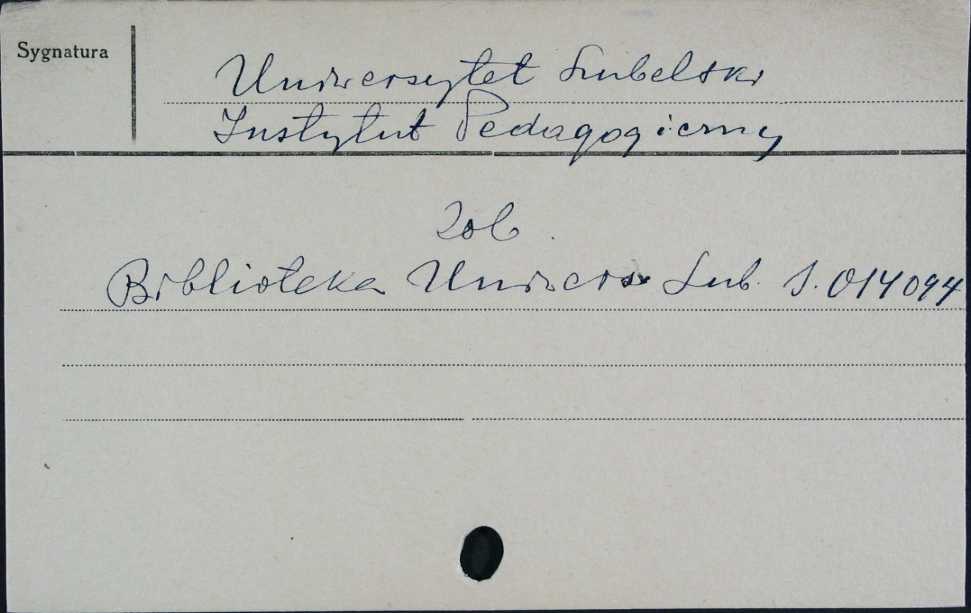 Sygnatura
Uniwersytet Lubelski
Instytut Pedagogiczny
Zob.
Biblioteka Uniwers Lub. S. 014094